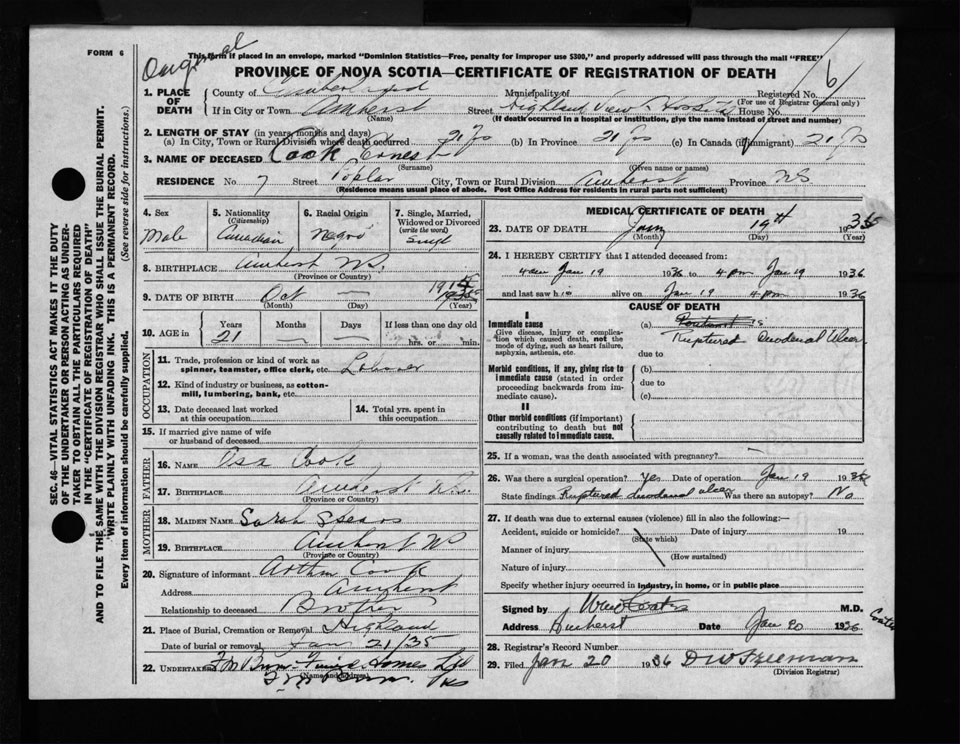 FORM 6
Original
This form if placed in an envelope, marked "Dominion Statistics—Free, penalty for improper use $300," and properly addressed will pass through the mail "FREE"
PROVINCE OF NOVA SCOTIA—CERTIFICATE OF REGISTRATION OF DEATH
6
SEC. 46—VITAL STATISTICS ACT MAKES IT THE DUTY
OF THE UNDERTAKER OR PERSON ACTING AS UNDER-
TAKER TO OBTAIN ALL THE PARTICULARS REQUIRED
IN THE "CERTIFICATE OF REGISTRATION OF DEATH"
AND TO FILE THE SAME WITH THE DIVISION REGISTRAR WHO SHALL ISSUE THE BURIAL PERMIT.
WRITE PLAINLY WITH UNFADING INK. THIS IS A PERMANENT RECORD.
Every item of information should be carefully supplied. (See reverse side for instructions.)
1. PLACE OF DEATH
County of Cumberland Municipality of Registered No.
(For use of Registrar General only)
If in City or Town Amherst Street Highland View Hospital House No.
(Name) (If death occurred in a hospital or institution, give the name instead of street and number)
2. LENGTH OF STAY (in years, months and days)
(a) In City, Town or Rural Division where death occurred 21 Ys (b) In Province 21 Ys (c) In Canada (if immigrant) 21 Ys
3. NAME OF DECEASED Cook Ernest
(Surname) (Given name or names)
RESIDENCE No. 7 Street Poplar City, Town or Rural Division Amherst Province NS
(Residence means usual place of abode. Post Office Address for residents in rural parts not sufficient)
4. Sex
Male
5. Nationality
(Citizenship)
Canadian
6. Racial Origin
Negro
7. Single, Married,
Widowed or Divorced
(write the word)
Singl
8. BIRTHPLACE Amherst NS.
(Province or Country)
9. DATE OF BIRTH Oct — 1914
(Month) (Day) (Year)
10. AGE in
Years Months Days If less than one day old
21 — — hrs. or min.
OCCUPATION
11. Trade, profession or kind of work as
spinner, teamster, office clerk, etc. Laborer
12. Kind of industry or business, as cotton-
mill, lumbering, bank, etc.
13. Date deceased last worked
at this occupation
14. Total yrs. spent in
this occupation
15. If married give name of wife
or husband of deceased
FATHER
16. NAME Asa Cook
17. BIRTHPLACE Amherst NS.
(Province or Country)
MOTHER
18. MAIDEN NAME Sarah
19. BIRTHPLACE Amherst NS
(Province or Country)
20. Signature of informant Arthur Cook
Address Amherst
Relationship to deceased Brother
21. Place of Burial, Cremation or Removal Highland
Date of burial or removal Jan 21/35
22. UNDERTAKER Homes Ltd
(Name and address)
NS
MEDICAL CERTIFICATE OF DEATH
23. DATE OF DEATH Jany 19th 1936
(Month) (Day) (Year)
24. I HEREBY CERTIFY that I attended deceased from:
4 am Jan 19 1936 to 4 pm Jan 19 1936
and last saw him alive on Jan 19 4 pm 1936
CAUSE OF DEATH
I
Immediate cause
Give disease, injury or complica-
tion which caused death, not the
mode of dying, such as heart failure,
asphyxia, asthenia, etc.
(a) Peritonitis
Ruptured Duodenal Ulcer
due to
Morbid conditions, if any, giving rise to
immediate cause (stated in order
proceeding backwards from im-
mediate cause).
(b)
due to
(c)
II
Other morbid conditions (if important)
contributing to death but not
causally related to immediate cause.
25. If a woman, was the death associated with pregnancy?
26. Was there a surgical operation? Yes Date of operation Jan 19 1936
State findings Ruptured duodenal ulcer Was there an autopsy? No
27. If death was due to external causes (violence) fill in also the following:—
Accident, suicide or homicide? Date of injury 19
(State which)
Manner of injury
(How sustained)
Nature of injury
Specify whether injury occurred in industry, in home, or in public place
Signed by Coates M.D.
Coates
Address Amherst Date Jan 20 1936
28. Registrar's Record Number
29. Filed Jan 20 1936 D W Freeman
(Division Registrar)